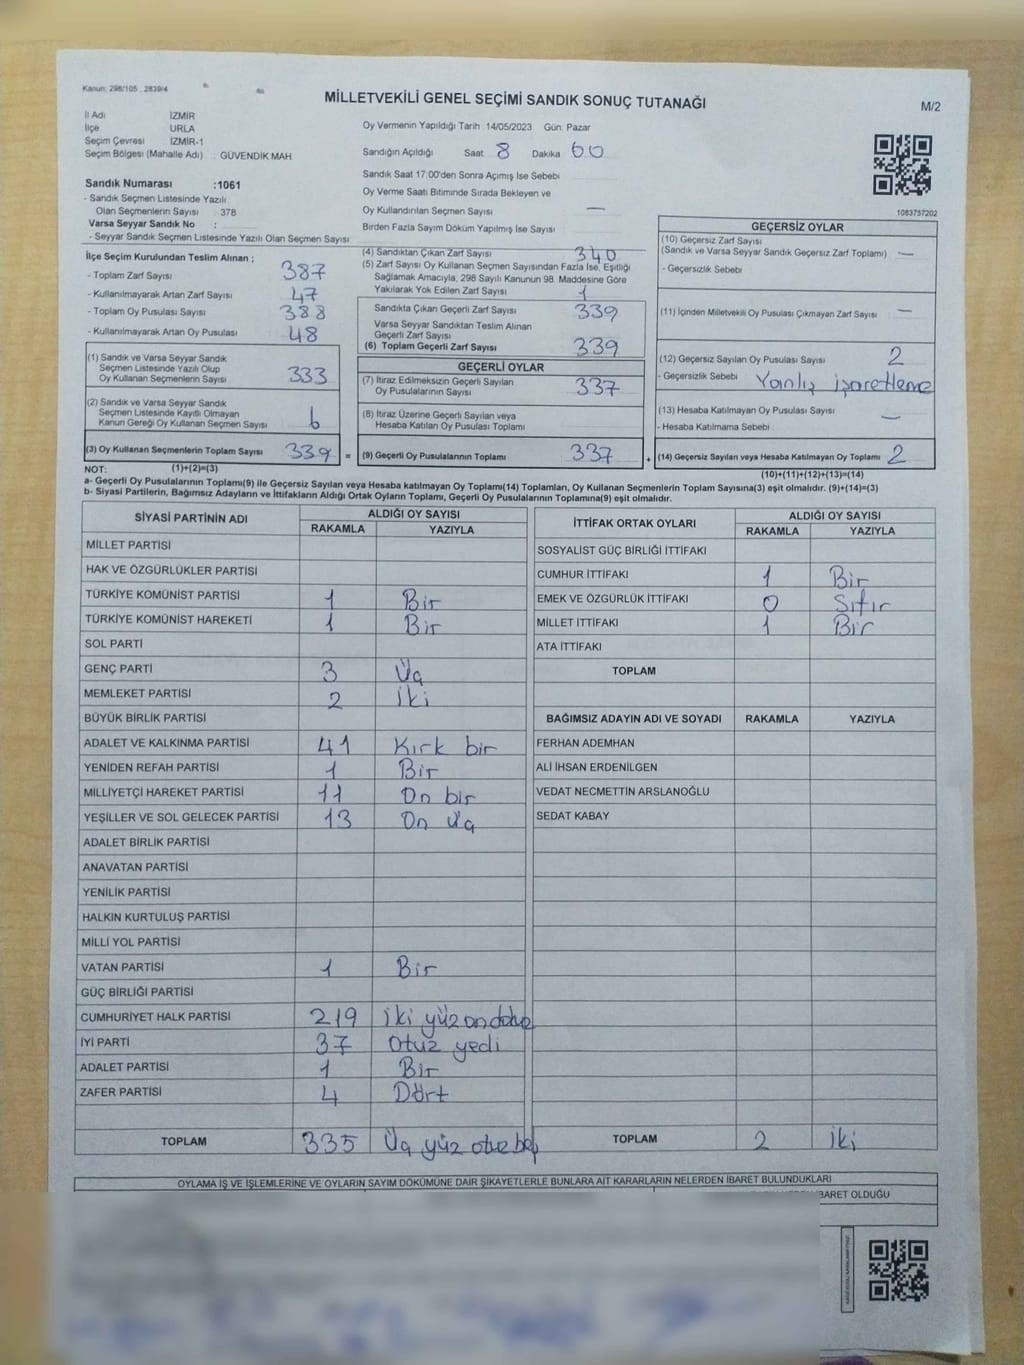 Kanun: 298/105 , 2839/4
MİLLETVEKİLİ GENEL SEÇİMİ SANDIK SONUÇ TUTANAĞI
M/2
İl Adı İZMİR
İlçe URLA
Seçim Çevresi İZMİR-1
Seçim Bölgesi (Mahalle Adı) : GÜVENDİK MAH
Sandık Numarası :1061
- Sandık Seçmen Listesinde Yazılı
Olan Seçmenlerin Sayısı : 378
Varsa Seyyar Sandık No :
- Seyyar Sandık Seçmen Listesinde Yazılı Olan Seçmen Sayısı
Oy Vermenin Yapıldığı Tarih 14/05/2023 Gün: Pazar
Sandığın Açıldığı Saat 8 Dakika 00
Sandık Saat 17:00'den Sonra Açımış İse Sebebi
Oy Verme Saati Bitiminde Sırada Bekleyen ve
Oy Kullandırılan Seçmen Sayısı —
Birden Fazla Sayım Döküm Yapılmış İse Sayısı
1083757202
İlçe Seçim Kurulundan Teslim Alınan ;
- Toplam Zarf Sayısı 387
- Kullanılmayarak Artan Zarf Sayısı 47
- Toplam Oy Pusulası Sayısı 388
- Kullanılmayarak Artan Oy Pusulası 48
(1) Sandık ve Varsa Seyyar Sandık
Seçmen Listesinde Yazılı Olup
Oy Kullanan Seçmenlerin Sayısı 333
(2) Sandık ve Varsa Seyyar Sandık
Seçmen Listesinde Kayıtlı Olmayan
Kanun Gereği Oy Kullanan Seçmen Sayısı 6
(3) Oy Kullanan Seçmenlerin Toplam Sayısı 339 =
(4) Sandıktan Çıkan Zarf Sayısı 340
(5) Zarf Sayısı Oy Kullanan Seçmen Sayısından Fazla İse, Eşitliği
Sağlamak Amacıyla, 298 Sayılı Kanunun 98. Maddesine Göre
Yakılarak Yok Edilen Zarf Sayısı 1
Sandıkta Çıkan Geçerli Zarf Sayısı 339
Varsa Seyyar Sandıktan Teslim Alınan
Geçerli Zarf Sayısı
(6) Toplam Geçerli Zarf Sayısı 339
GEÇERLİ OYLAR
(7) İtiraz Edilmeksizin Geçerli Sayılan
Oy Pusulalarının Sayısı 337
(8) İtiraz Üzerine Geçerli Sayılan veya
Hesaba Katılan Oy Pusulası Toplamı
(9) Geçerli Oy Pusulalarının Toplamı 337 +
GEÇERSİZ OYLAR
(10) Geçersiz Zarf Sayısı
(Sandık ve Varsa Seyyar Sandık Geçersiz Zarf Toplamı) —
- Geçersizlik Sebebi
(11) İçinden Milletvekili Oy Pusulası Çıkmayan Zarf Sayısı —
(12) Geçersiz Sayılan Oy Pusulası Sayısı 2
- Geçersizlik Sebebi Yanlış işaretleme
(13) Hesaba Katılmayan Oy Pusulası Sayısı —
- Hesaba Katılmama Sebebi
(14) Geçersiz Sayılan veya Hesaba Katılmayan Oy Toplamı 2
NOT: (1)+(2)=(3) (10)+(11)+(12)+(13)=(14)
a- Geçerli Oy Pusulalarının Toplamı(9) ile Geçersiz Sayılan veya Hesaba Katılmayan Oy Toplamı(14) Toplamları, Oy Kullanan Seçmenlerin Toplam Sayısına(3) eşit olmalıdır. (9)+(14)=(3)
b- Siyasi Partilerin, Bağımsız Adayların ve İttifakların Aldığı Ortak Oyların Toplamı, Geçerli Oy Pusulalarının Toplamına(9) eşit olmalıdır.
SİYASİ PARTİNİN ADI ALDIĞI OY SAYISI
RAKAMLA YAZIYLA
MİLLET PARTİSİ
HAK VE ÖZGÜRLÜKLER PARTİSİ
TÜRKİYE KOMÜNİST PARTİSİ 1 Bir
TÜRKİYE KOMÜNİST HAREKETİ 1 Bir
SOL PARTİ
GENÇ PARTİ 3 Üç
MEMLEKET PARTİSİ 2 iki
BÜYÜK BİRLİK PARTİSİ
ADALET VE KALKINMA PARTİSİ 41 Kırk bir
YENİDEN REFAH PARTİSİ 1 Bir
MİLLİYETÇİ HAREKET PARTİSİ 11 On bir
YEŞİLLER VE SOL GELECEK PARTİSİ 13 On üç
ADALET BİRLİK PARTİSİ
ANAVATAN PARTİSİ
YENİLİK PARTİSİ
HALKIN KURTULUŞ PARTİSİ
MİLLİ YOL PARTİSİ
VATAN PARTİSİ 1 Bir
GÜÇ BİRLİĞİ PARTİSİ
CUMHURİYET HALK PARTİSİ 219 iki yüz on dokuz
İYİ PARTİ 37 Otuz yedi
ADALET PARTİSİ 1 Bir
ZAFER PARTİSİ 4 Dört
TOPLAM 335 Üç yüz otuz beş
İTTİFAK ORTAK OYLARI ALDIĞI OY SAYISI
RAKAMLA YAZIYLA
SOSYALİST GÜÇ BİRLİĞİ İTTİFAKI
CUMHUR İTTİFAKI 1 Bir
EMEK VE ÖZGÜRLÜK İTTİFAKI 0 Sıfır
MİLLET İTTİFAKI 1 Bir
ATA İTTİFAKI
TOPLAM
BAĞIMSIZ ADAYIN ADI VE SOYADI RAKAMLA YAZIYLA
FERHAN ADEMHAN
ALİ İHSAN ERDENİLGEN
VEDAT NECMETTİN ARSLANOĞLU
SEDAT KABAY
TOPLAM 2 iki
OYLAMA İŞ VE İŞLEMLERİNE VE OYLARIN SAYIM DÖKÜMÜNE DAİR ŞİKAYETLERLE BUNLARA AİT KARARLARIN NELERDEN İBARET BULUNDUKLARI
İBARET OLDUĞU